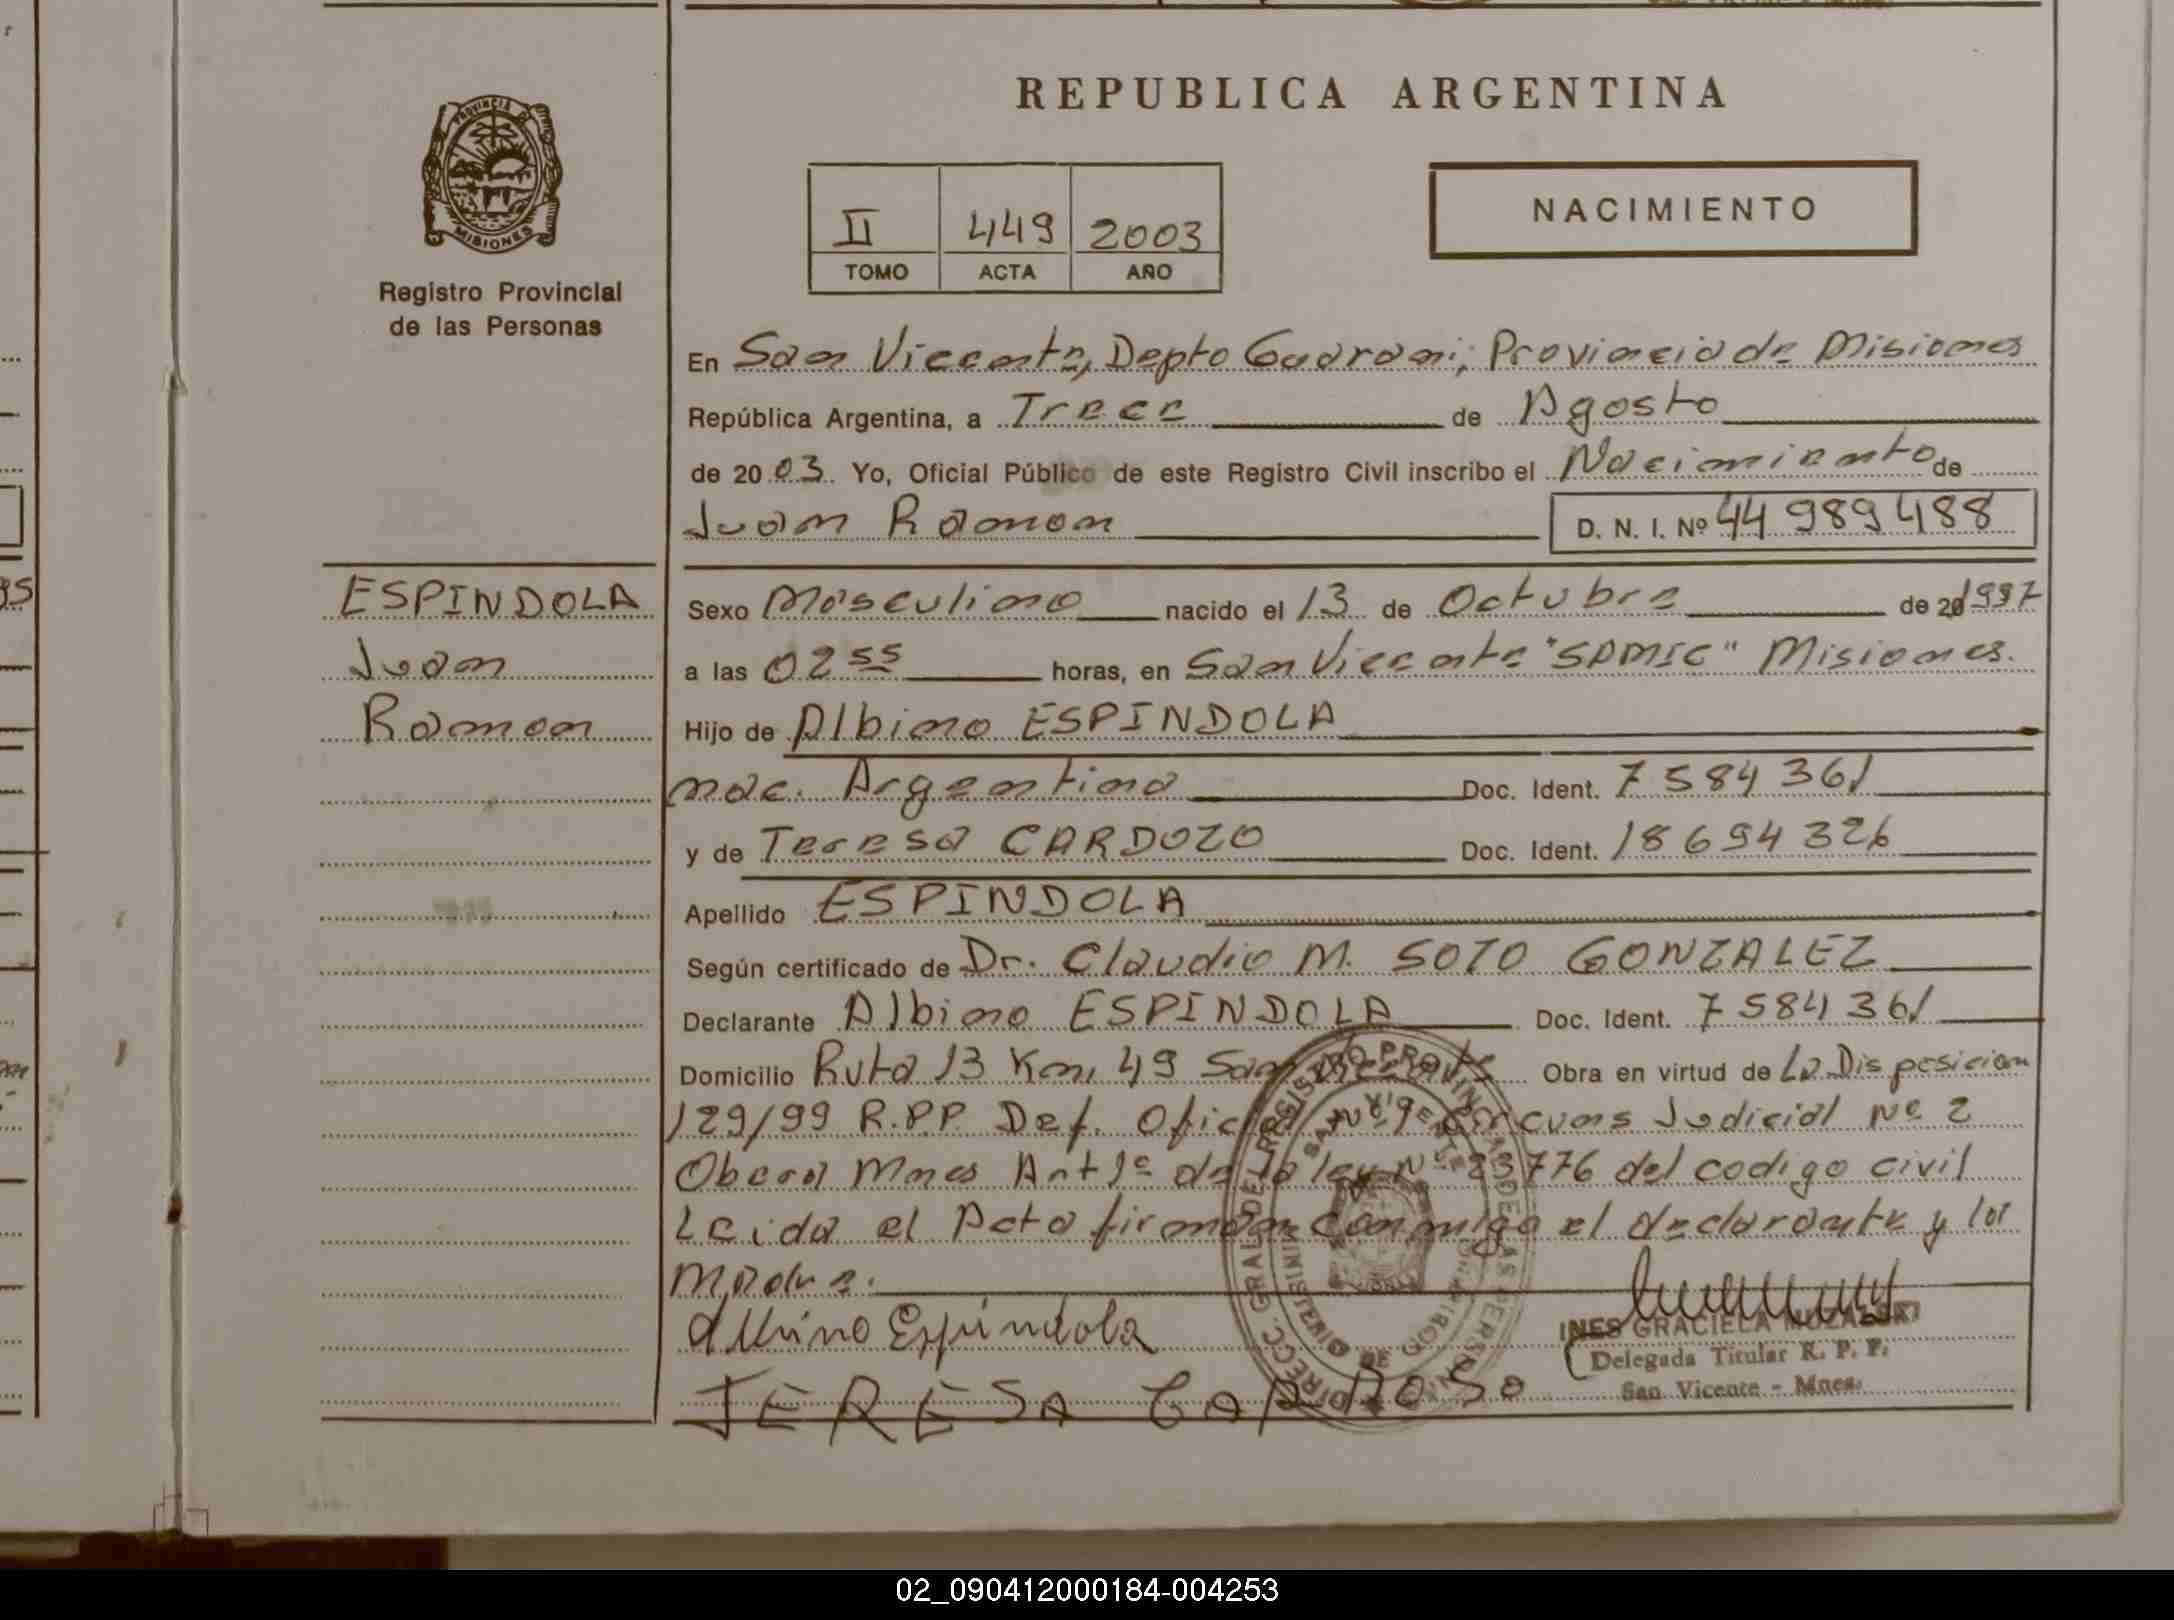 REPUBLICA ARGENTINA
PROVINCIA DE MISIONES
Registro Provincial
de las Personas
II 449 2003
TOMO ACTA AÑO
NACIMIENTO
En San Vicente, Depto Guarani; Provincia de Misiones
República Argentina, a Trece de Agosto
de 2003. Yo, Oficial Público de este Registro Civil inscribo el Nacimiento de
Juan Ramon D. N. I. Nº 44 989 488
ESPINDOLA
Juan
Ramon
Sexo Masculino nacido el 13 de Octubre de 20 1997
a las 02 55 horas, en San Vicente "SAMIC" Misiones.
Hijo de Albino ESPINDOLA
nac. Argentina Doc. Ident. 7 584 361
y de Teresa CARDOZO Doc. Ident. 18 694 326
Apellido ESPINDOLA
Según certificado de Dr. Claudio M. SOTO GONZALEZ
Declarante Albino ESPINDOLA Doc. Ident. 7 584 361
Domicilio Ruta 13 Km. 49 San Vicente Obra en virtud de La Disposicion
129/99 R.P.P. Def. Oficial Nº 9 Circuns Judicial Nº 2
Obera Mnes Art 1º de la ley Nº 23776 del codigo civil
Leida el Acta firman conmigo el declarante y la
Madre.
Albino Espindola
TERESA CARDOSO
INES GRACIELA
Delegada Titular R. P. P.
San Vicente - Mnes.
DIRECC. GRAL. DEL REGISTRO PROVINCIAL DE LAS PERSONAS
SAN VICENTE
MINISTERIO DE GOBIERNO
02_090412000184-004253